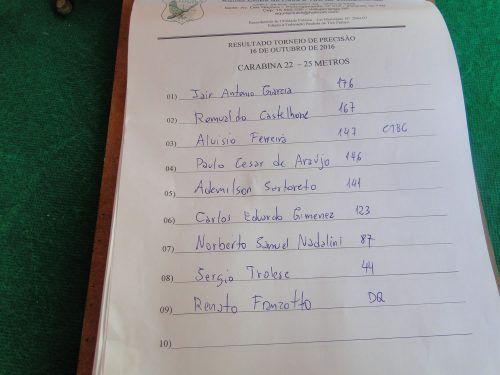 RESULTADO TORNEIO DE PRECISÃO
16 DE OUTUBRO DE 2016
CARABINA 22 – 25 METROS
01) Jair Antonio Garcia 176
02) Romualdo Castelhone 167
03) Aluisio Ferreira 147 CTBC
04) Paulo Cesar de Araújo 146
05) Ademilson Sortoreto 141
06) Carlos Eduardo Gimenez 123
07) Norberto Samuel Nadalini 87
08) Sergio Trolese 44
09) Renato Franzotto DQ
10)